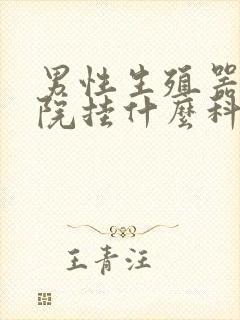 男性生殖器
院挂什麼科
王青汪